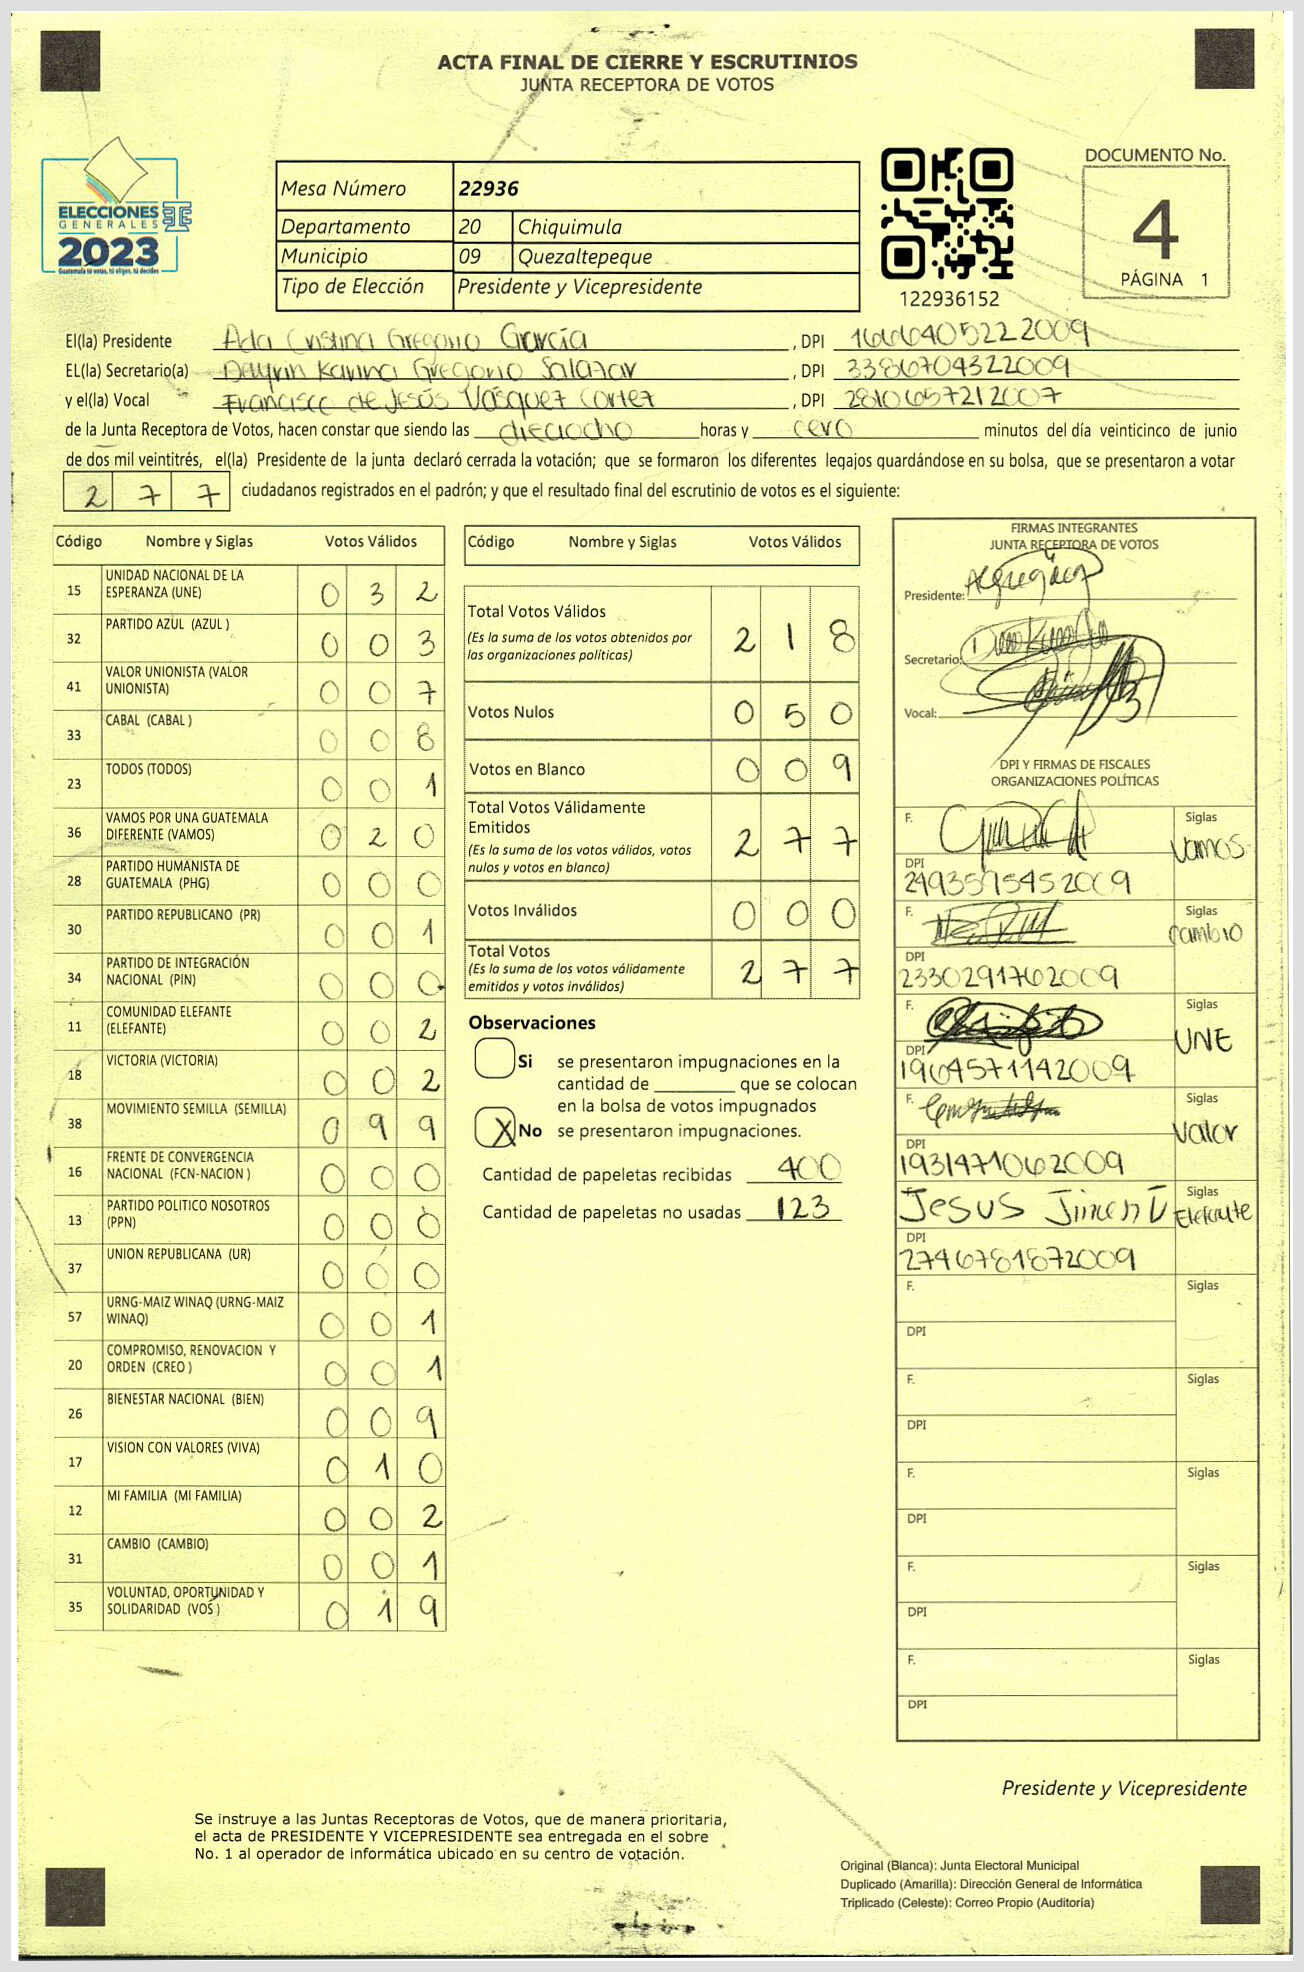 ACTA FINAL DE CIERRE Y ESCRUTINIOS
JUNTA RECEPTORA DE VOTOS
ELECCIONES
GENERALES
2023
Guatemala tú votas, tú eliges, tú decides
Mesa Número 22936
Departamento 20 Chiquimula
Municipio 09 Quezaltepeque
Tipo de Elección Presidente y Vicepresidente
122936152
DOCUMENTO No.
4
PÁGINA 1
El(la) Presidente Ada Cristina Gregorio García, DPI 1666405222009
EL(la) Secretario(a) Karina Gregorio Salazar, DPI 3386704322009
y el(la) Vocal Francisco de Jesús Vásquez Cortez, DPI 2810657212007
de la Junta Receptora de Votos, hacen constar que siendo las dieciocho horas y cero minutos del día veinticinco de junio
de dos mil veintitrés, el(la) Presidente de la junta declaró cerrada la votación; que se formaron los diferentes legajos guardándose en su bolsa, que se presentaron a votar
2 7 7 ciudadanos registrados en el padrón; y que el resultado final del escrutinio de votos es el siguiente:
Código Nombre y Siglas Votos Válidos
15 UNIDAD NACIONAL DE LA
ESPERANZA (UNE) 0 3 2
32 PARTIDO AZUL (AZUL ) 0 0 3
41 VALOR UNIONISTA (VALOR
UNIONISTA) 0 0 7
33 CABAL (CABAL ) 0 0 8
23 TODOS (TODOS) 0 0 1
36 VAMOS POR UNA GUATEMALA
DIFERENTE (VAMOS) 0 2 0
28 PARTIDO HUMANISTA DE
GUATEMALA (PHG) 0 0 0
30 PARTIDO REPUBLICANO (PR) 0 0 1
34 PARTIDO DE INTEGRACIÓN
NACIONAL (PIN) 0 0 0
11 COMUNIDAD ELEFANTE
(ELEFANTE) 0 0 2
18 VICTORIA (VICTORIA) 0 0 2
38 MOVIMIENTO SEMILLA (SEMILLA) 0 9 9
16 FRENTE DE CONVERGENCIA
NACIONAL (FCN-NACION ) 0 0 0
13 PARTIDO POLITICO NOSOTROS
(PPN) 0 0 0
37 UNION REPUBLICANA (UR) 0 0 0
57 URNG-MAIZ WINAQ (URNG-MAIZ
WINAQ) 0 0 1
20 COMPROMISO, RENOVACION Y
ORDEN (CREO ) 0 0 1
26 BIENESTAR NACIONAL (BIEN) 0 0 9
17 VISION CON VALORES (VIVA) 0 1 0
12 MI FAMILIA (MI FAMILIA) 0 0 2
31 CAMBIO (CAMBIO) 0 0 1
35 VOLUNTAD, OPORTUNIDAD Y
SOLIDARIDAD (VOS ) 0 1 9
Código Nombre y Siglas Votos Válidos
Total Votos Válidos 2 1 8
(Es la suma de los votos obtenidos por
las organizaciones políticas)
Votos Nulos 0 5 0
Votos en Blanco 0 0 9
Total Votos Válidamente
Emitidos 2 7 7
(Es la suma de los votos válidos, votos
nulos y votos en blanco)
Votos Inválidos 0 0 0
Total Votos 2 7 7
(Es la suma de los votos válidamente
emitidos y votos inválidos)
Observaciones
Si se presentaron impugnaciones en la
cantidad de ________ que se colocan
en la bolsa de votos impugnados
X No se presentaron impugnaciones.
Cantidad de papeletas recibidas 400
Cantidad de papeletas no usadas 123
FIRMAS INTEGRANTES
JUNTA RECEPTORA DE VOTOS
Presidente:
Secretario:
Vocal:
DPI Y FIRMAS DE FISCALES
ORGANIZACIONES POLÍTICAS
F. Siglas
Vamos
DPI
2493595452009
F. Siglas
Cambio
DPI
2330291762009
F. Siglas
UNE
DPI
1964571142009
F. Siglas
Valor
DPI
1931471062009
Jesus Siglas
Elefante
DPI
2746781872009
F. Siglas
DPI
F. Siglas
DPI
F. Siglas
DPI
F. Siglas
DPI
F. Siglas
DPI
Presidente y Vicepresidente
Se instruye a las Juntas Receptoras de Votos, que de manera prioritaria,
el acta de PRESIDENTE Y VICEPRESIDENTE sea entregada en el sobre
No. 1 al operador de informática ubicado en su centro de votación.
Original (Blanca): Junta Electoral Municipal
Duplicado (Amarilla): Dirección General de Informática
Triplicado (Celeste): Correo Propio (Auditoría)